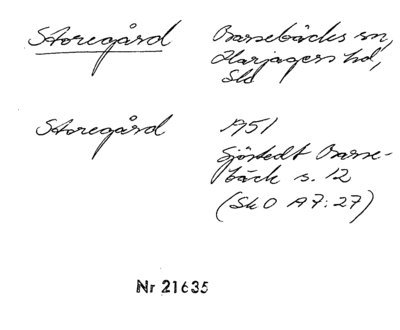 Storegård
Barsebäcks sn,
Harjagers hd,
Sk
Storegård
1951
Sjöstedt Barse-
bäck s. 12
(Sk O A7:27)
Nr 21635